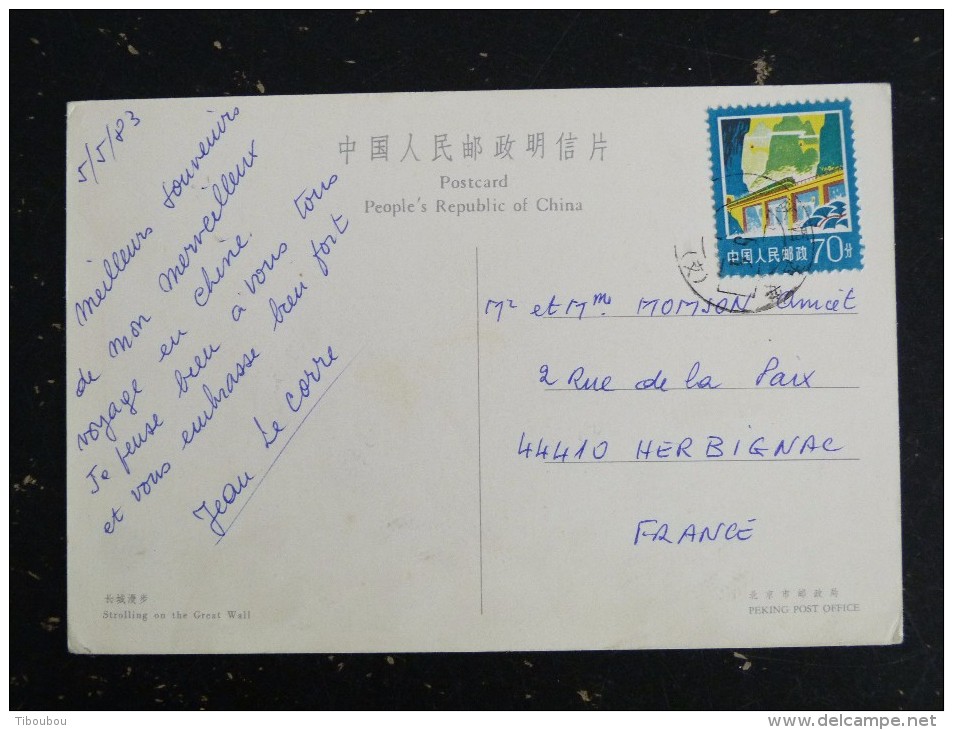 5/5/83
meilleurs souvenirs
de mon merveilleux
voyage en chine.
Je pense bien à vous tous
et vous embrasse bien fort
Jean Le Corre
中国人民邮政明信片
Postcard
People's Republic of China
中国人民邮政 70分
Mr et Mme MOMSON Anicet
2 Rue de la Paix
44410 HERBIGNAC
FRANCE
长城漫步
Strolling on the Great Wall
北京市邮政局
PEKING POST OFFICE
Tiboubou
www.delcampe.net